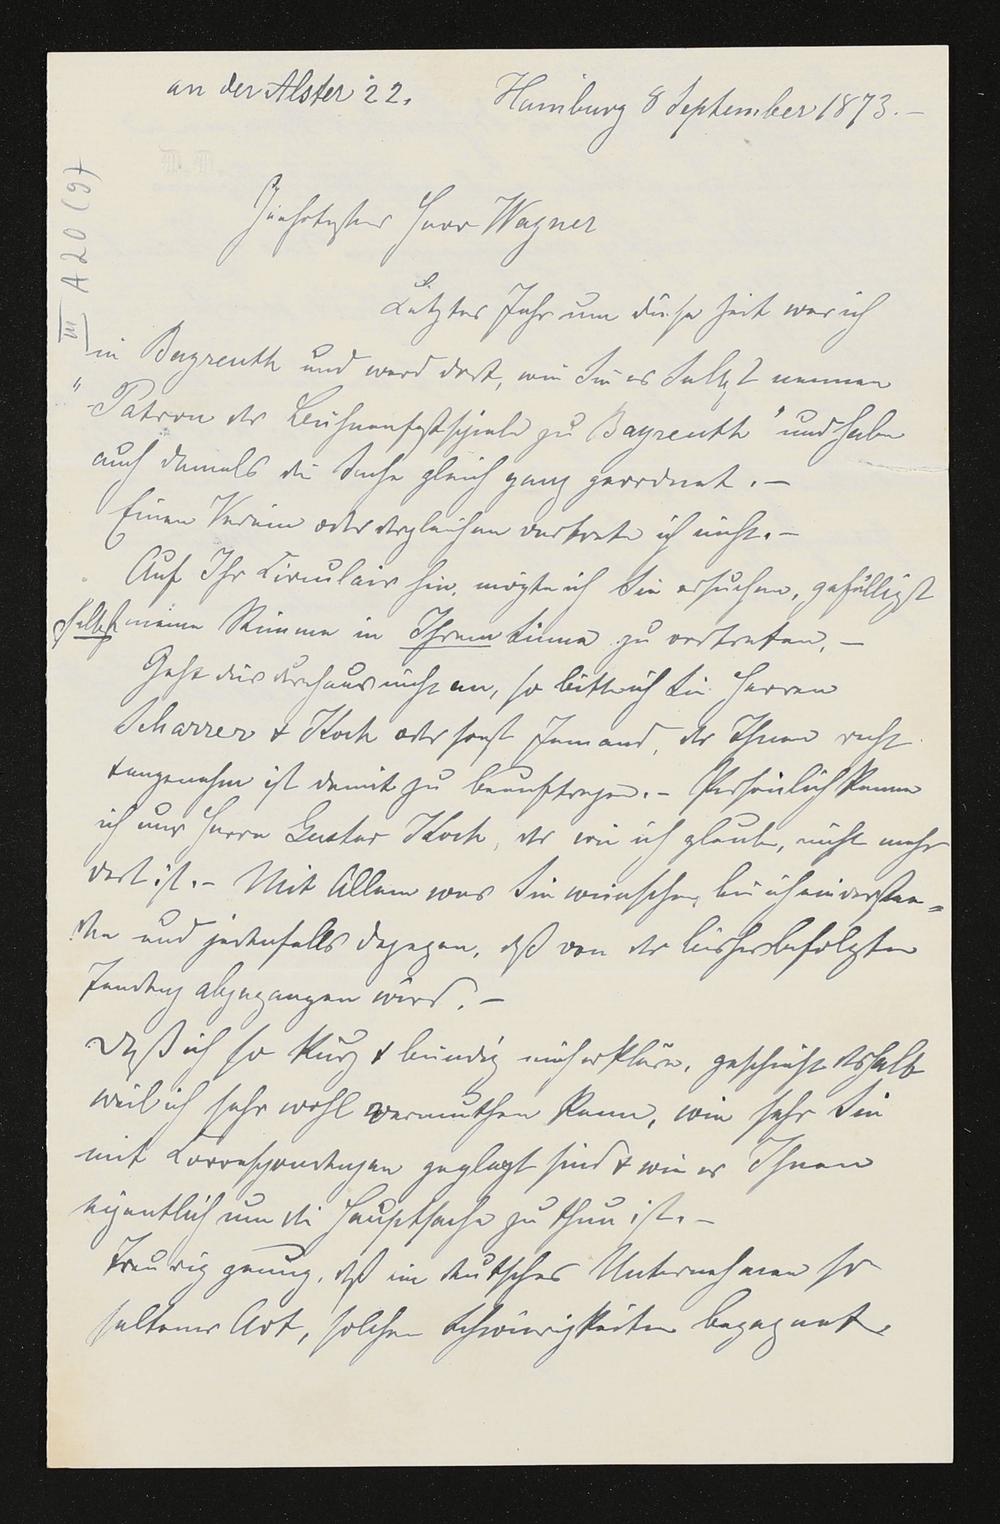 an der Alster 22. Hamburg 8 September 1873.–
III A 20 (9)
Geehrtester Herr Wagner
Letztes Jahr um diese Zeit war ich
in Bayreuth und ward dort, wie Sie es selbst nennen
"Patron der Bühnenfestspiele zu Bayreuth" und habe
auch damals die Sache gleich ganz geordnet.–
Einen Verein oder dergleichen vertrete ich nicht.–
Auf Ihr Circulair hin, mögte ich Sie ersuchen, gefälligst
selbst meine Stimme in Ihrem Sinne zu vertreten.–
Geht dies durchaus nicht an, so bitte ich Sie Herren
Scharrer & Koch oder sonst Jemand, der Ihnen recht
& angenehm ist damit zu beauftragen.– Persönlich kenne
ich nur Herrn Gustav Koch, der wie ich glaube, nicht mehr
dort ist.– Mit Allem was Sie wünschen, bin ich einverstan=
den und jedenfalls dagegen, daß von der bisher befolgten
Tendenz abgegangen wird.–
Daß ich so kurz & bündig mich erkläre, geschieht deshalb
weil ich sehr wohl vermuthen kann, wie sehr Sie
mit Correspondenzen geplagt sind & wie es Ihnen
eigentlich um die Hauptsache zu thun ist.–
Traurig genug, daß ein deutsches Unternehmen so
seltener Art, solchen Schwierigkeiten begegnet.